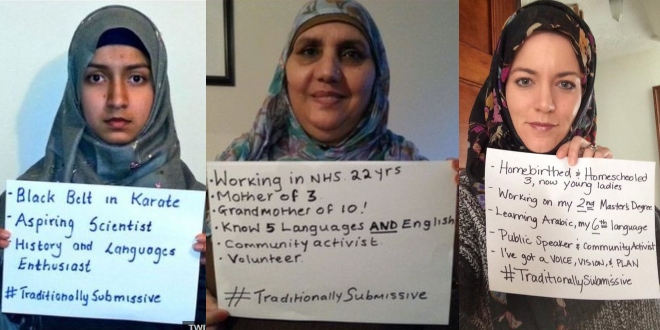 - Black Belt in Karate
- Aspiring Scientist
- History and Languages
Enthusiast
#TraditionallySubmissive
- Working in NHS. 22yrs
- Mother of 3
- Grandmother of 10!
- Know 5 Languages AND English
- Community activist.
- Volunteer.
#TraditionallySubmissive
- Homebirthed & Homeschooled
3, now young ladies
- Working on my 2nd Master's Degree
- Learning Arabic, my 6th language
- Public Speaker & Community Activist
- I've got a VOICE, VISION, & PLAN
#TraditionallySubmissive